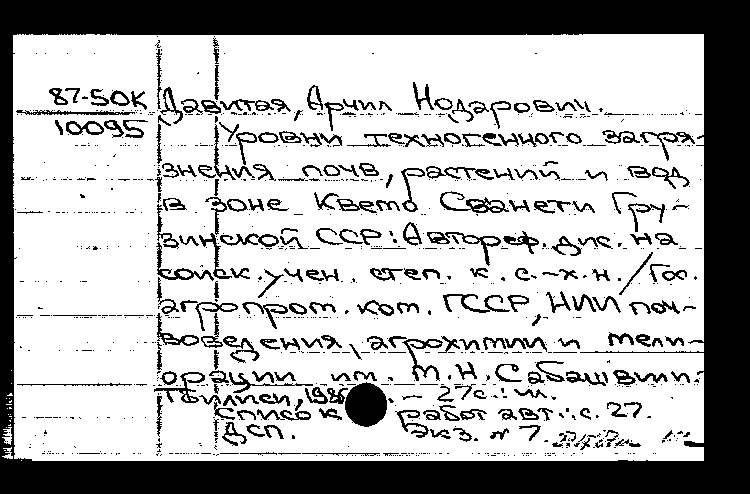 87-5ОК Давитая, Арчил Нодарович.
10095 Уровни техногенного загря-
знения почв, растений и вод
в зоне Квемо Сванети Гру-
зинской ССР: Автореф. дис. на
соиск. учен. степ. к. с.-х. н. / Гос.
агропром. ком. ГССР, НИИ поч-
воведения, агрохимии и мели-
орации им. М. Н. Сабашвили.
Тбилиси, 1986. - 27 с.: ил.
Список работ авт.: с. 27.
ДСП. Экз. № 7.